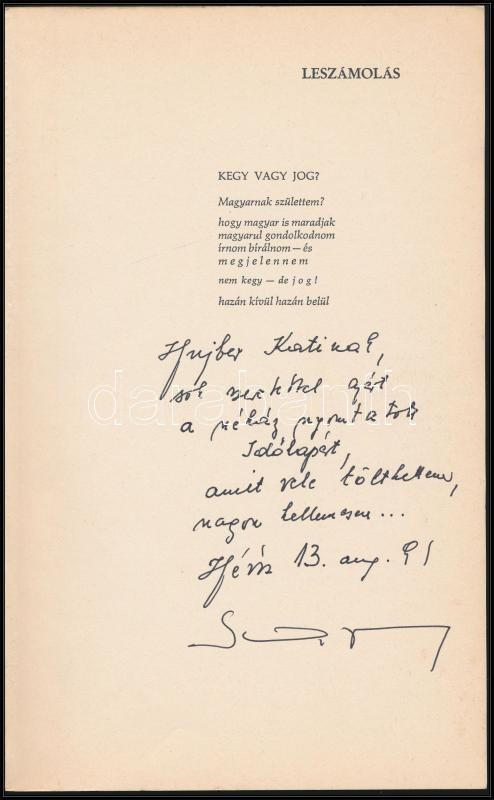 LESZÁMOLÁS
KEGY VAGY JOG?
Magyarnak születtem?
hogy magyar is maradjak
magyarul gondolkodnom
írnom bírálnom — és
megjelennem
nem kegy — de jog!
hazán kívül hazán belül
Hujber Katinak,
sok szeretettel azért
a néhány
Időlapért,
amit vele tölthettem,
nagyon kellemesen...
Hévíz 13. aug. 91
darabanth